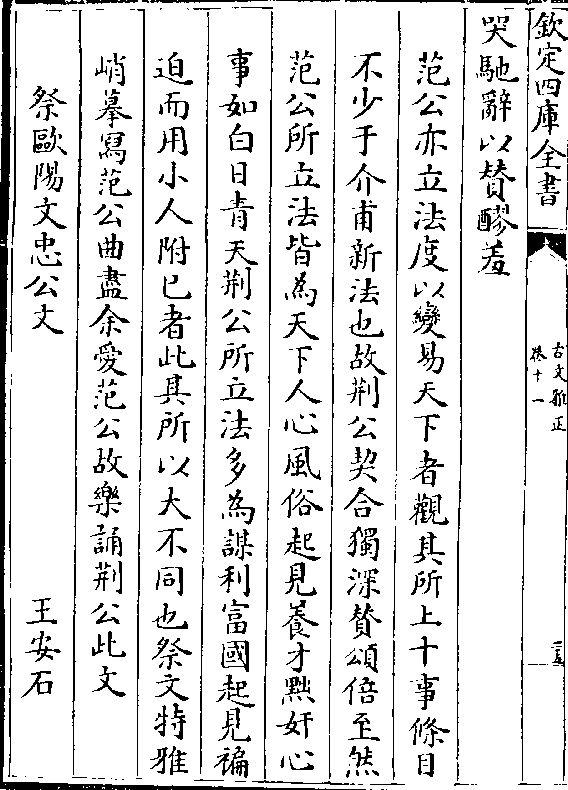 欽定四庫全書
古文雅正
卷十一
哭馳辭以贊醪羞
范公亦立法度以變易天下者觀其所上十事條目
不少于介甫新法也故荆公契合獨深贊頌倍至然
范公所立法皆為天下人心風俗起見養才黜奸心
事如白日青天荆公所立法多為謀利富國起見褊
迫而用小人附已者此其所以大不同也祭文特雅
峭摹寫范公曲盡余愛范公故樂誦荆公此文
祭歐陽文忠公文
王安石